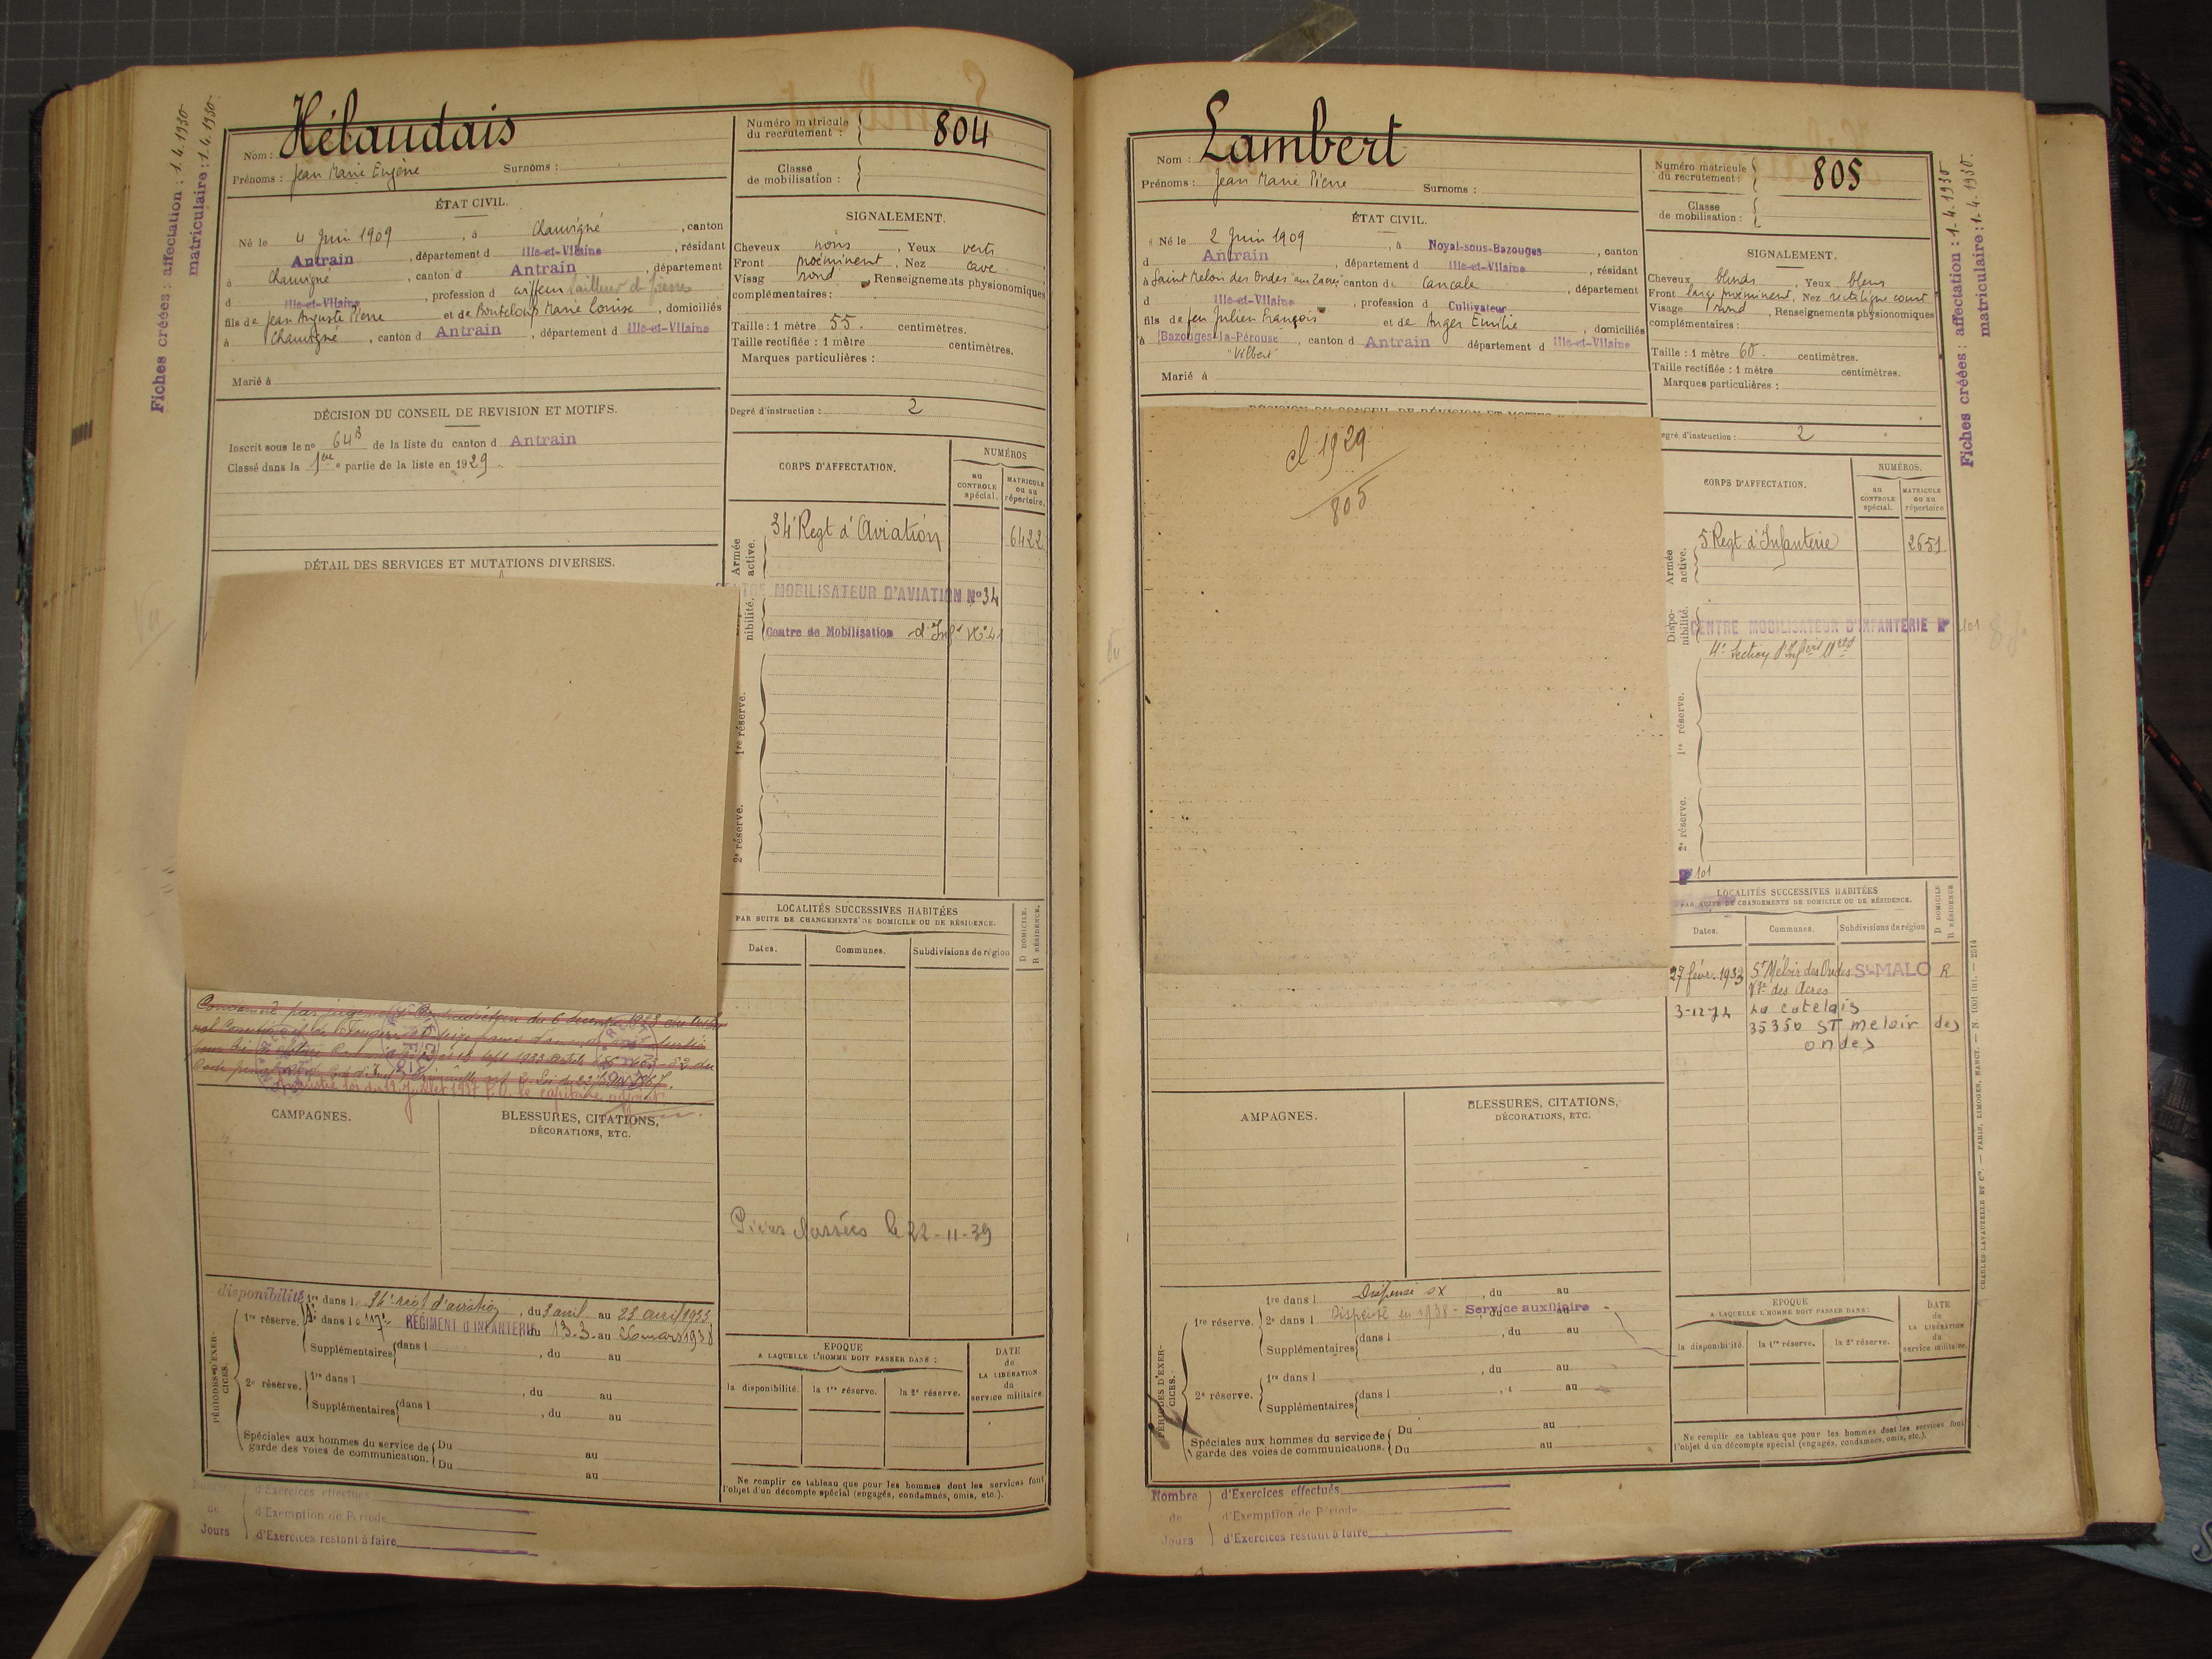 Fiches créées : affectation : 1.4.1930
matriculaire : 1.4.1930
Nom : Hélaudais
Prénoms : Jean Marie Eugène Surnoms :
Numéro matricule
du recrutement : 804
Classe
de mobilisation :
ÉTAT CIVIL.
Né le 4 Juin 1909, à Chauvigné, canton
Antrain, département d Ille-et-Vilaine, résidant
à Chauvigné, canton d Antrain, département
d Ille-et-Vilaine, profession d coiffeur tailleur de pierres
fils de Jean Auguste Pierre et de Bouteloup Marie Louise, domiciliés
à Chauvigné, canton d Antrain, département d Ille-et-Vilaine
Marié à
SIGNALEMENT.
Cheveux noirs, Yeux verts
Front proéminent, Nez cave
Visag rond Renseignements physionomiques
complémentaires :
Taille : 1 mètre 55. centimètres.
Taille rectifiée : 1 mètre centimètres.
Marques particulières :
Degré d'instruction : 2
DÉCISION DU CONSEIL DE REVISION ET MOTIFS.
Inscrit sous le n° 64B de la liste du canton d Antrain
Classé dans la 1ère partie de la liste en 1929.
DÉTAIL DES SERVICES ET MUTATIONS DIVERSES.
CORPS D'AFFECTATION.
NUMÉROS
au
CONTROLE
spécial.
MATRICULE
ou au
répertoire.
Armée
active.
34e Regt d'Aviation 6422
MOBILISATEUR D'AVIATION N° 34
nibilité.
Centre de Mobilisation d'Infie N° 41
1re réserve.
2e réserve.
LOCALITÉS SUCCESSIVES HABITÉES
PAR SUITE DE CHANGEMENTS DE DOMICILE OU DE RÉSIDENCE.
D DOMICILE.
R RÉSIDENCE.
Dates. Communes. Subdivisions de région
Amnistié loi du 12 Juillet 1937 P.O. le capitaine adjoint
CAMPAGNES.
BLESSURES, CITATIONS,
DÉCORATIONS, ETC.
Pièces classées le 22-11-39
PÉRIODES D'EXERCICES.
disponibilité 1re dans l 34e regt d'aviation, du 3 avril au 23 avril 1933
1re réserve. 2e dans l 117e REGIMENT D'INFANTERIE du 13.3. au 26 mars 1938
Supplémentaires dans l , du au
2e réserve. 1re dans l , du au
Supplémentaires dans l , du au
Spéciales aux hommes du service de
garde des voies de communication. Du au
Du au
EPOQUE
A LAQUELLE L'HOMME DOIT PASSER DANS :
la disponibilité. la 1re réserve. la 2e réserve.
DATE
de
LA LIBÉRATION
du
service militaire
Ne remplir ce tableau que pour les hommes dont les services font
l'objet d'un décompte spécial (engagés, condamnés, omis, etc.).
Nombre d'Exercices effectués
de d'Exemption de Période
Jours d'Exercices restant à faire
Nom : Lambert
Prénoms : Jean Marie Pierre Surnoms :
Numéro matricule
du recrutement : 805
Classe
de mobilisation :
Fiches créées : affectation : 1.4.1930
matriculaire : 1.4.1930.
ÉTAT CIVIL.
Né le 2 Juin 1909, à Noyal-sous-Bazouges, canton
d Antrain, département d Ille-et-Vilaine, résidant
à Saint Meloir des Ondes canton de Cancale, département
d Ille-et-Vilaine, profession d Cultivateur
fils de feu Julien François et de Anger Emilie, domiciliés
à Bazouges-la-Pérouse, canton d Antrain département d Ille-et-Vilaine
"Vilbert"
Marié à
SIGNALEMENT.
Cheveux blonds, Yeux bleus
Front large proéminent, Nez rectiligne court
Visage rond, Renseignements physionomiques
complémentaires :
Taille : 1 mètre 60. centimètres.
Taille rectifiée : 1 mètre centimètres.
Marques particulières :
egré d'instruction : 2
DÉCISION DU CONSEIL DE RÉVISION ET MOTIFS
cl. 1929
805
CORPS D'AFFECTATION.
NUMÉROS.
au
CONTROLE
spécial.
MATRICULE
ou au
répertoire
Armée
active.
5 Regt d'Infanterie 2651
Disponibilité.
CENTRE MOBILISATEUR D'INFANTERIE N° 101
4e Section d'Infirs Mres
1re réserve.
2e réserve.
N° 101
LOCALITÉS SUCCESSIVES HABITÉES
PAR SUITE DE CHANGEMENTS DE DOMICILE OU DE RÉSIDENCE.
D DOMICILE
R RÉSIDENCE
Dates. Communes. Subdivisions de région
27 févr. 1933 St Méloir des Ondes St-MALO R
Vge des Acres
3-12-74 La catelais
35350 ST meloir des
ondes
AMPAGNES.
BLESSURES, CITATIONS,
DÉCORATIONS, ETC.
PÉRIODES D'EXERCICES.
1re dans l Dispensé SX, du au
1re réserve. 2e dans l Dispensé en 1938 - Service auxiliaire -
Supplémentaires dans l , du au
2e réserve. 1re dans l , du au
Supplémentaires dans l , au
Spéciales aux hommes du service de
garde des voies de communication. Du au
Du au
EPOQUE
A LAQUELLE L'HOMME DOIT PASSER DANS :
la disponibilité. la 1re réserve. la 2e réserve.
DATE
de
LA LIBÉRATION
du
service militaire.
Ne remplir ce tableau que pour les hommes dont les services font
l'objet d'un décompte spécial (engagés, condamnés, omis, etc.).
CHARLES-LAVAUZELLE ET Cie. — PARIS, LIMOGES, NANCY. — N. 1001 int. — 2514
Nombre d'Exercices effectués
de d'Exemption de Période
Jours d'Exercices restant à faire